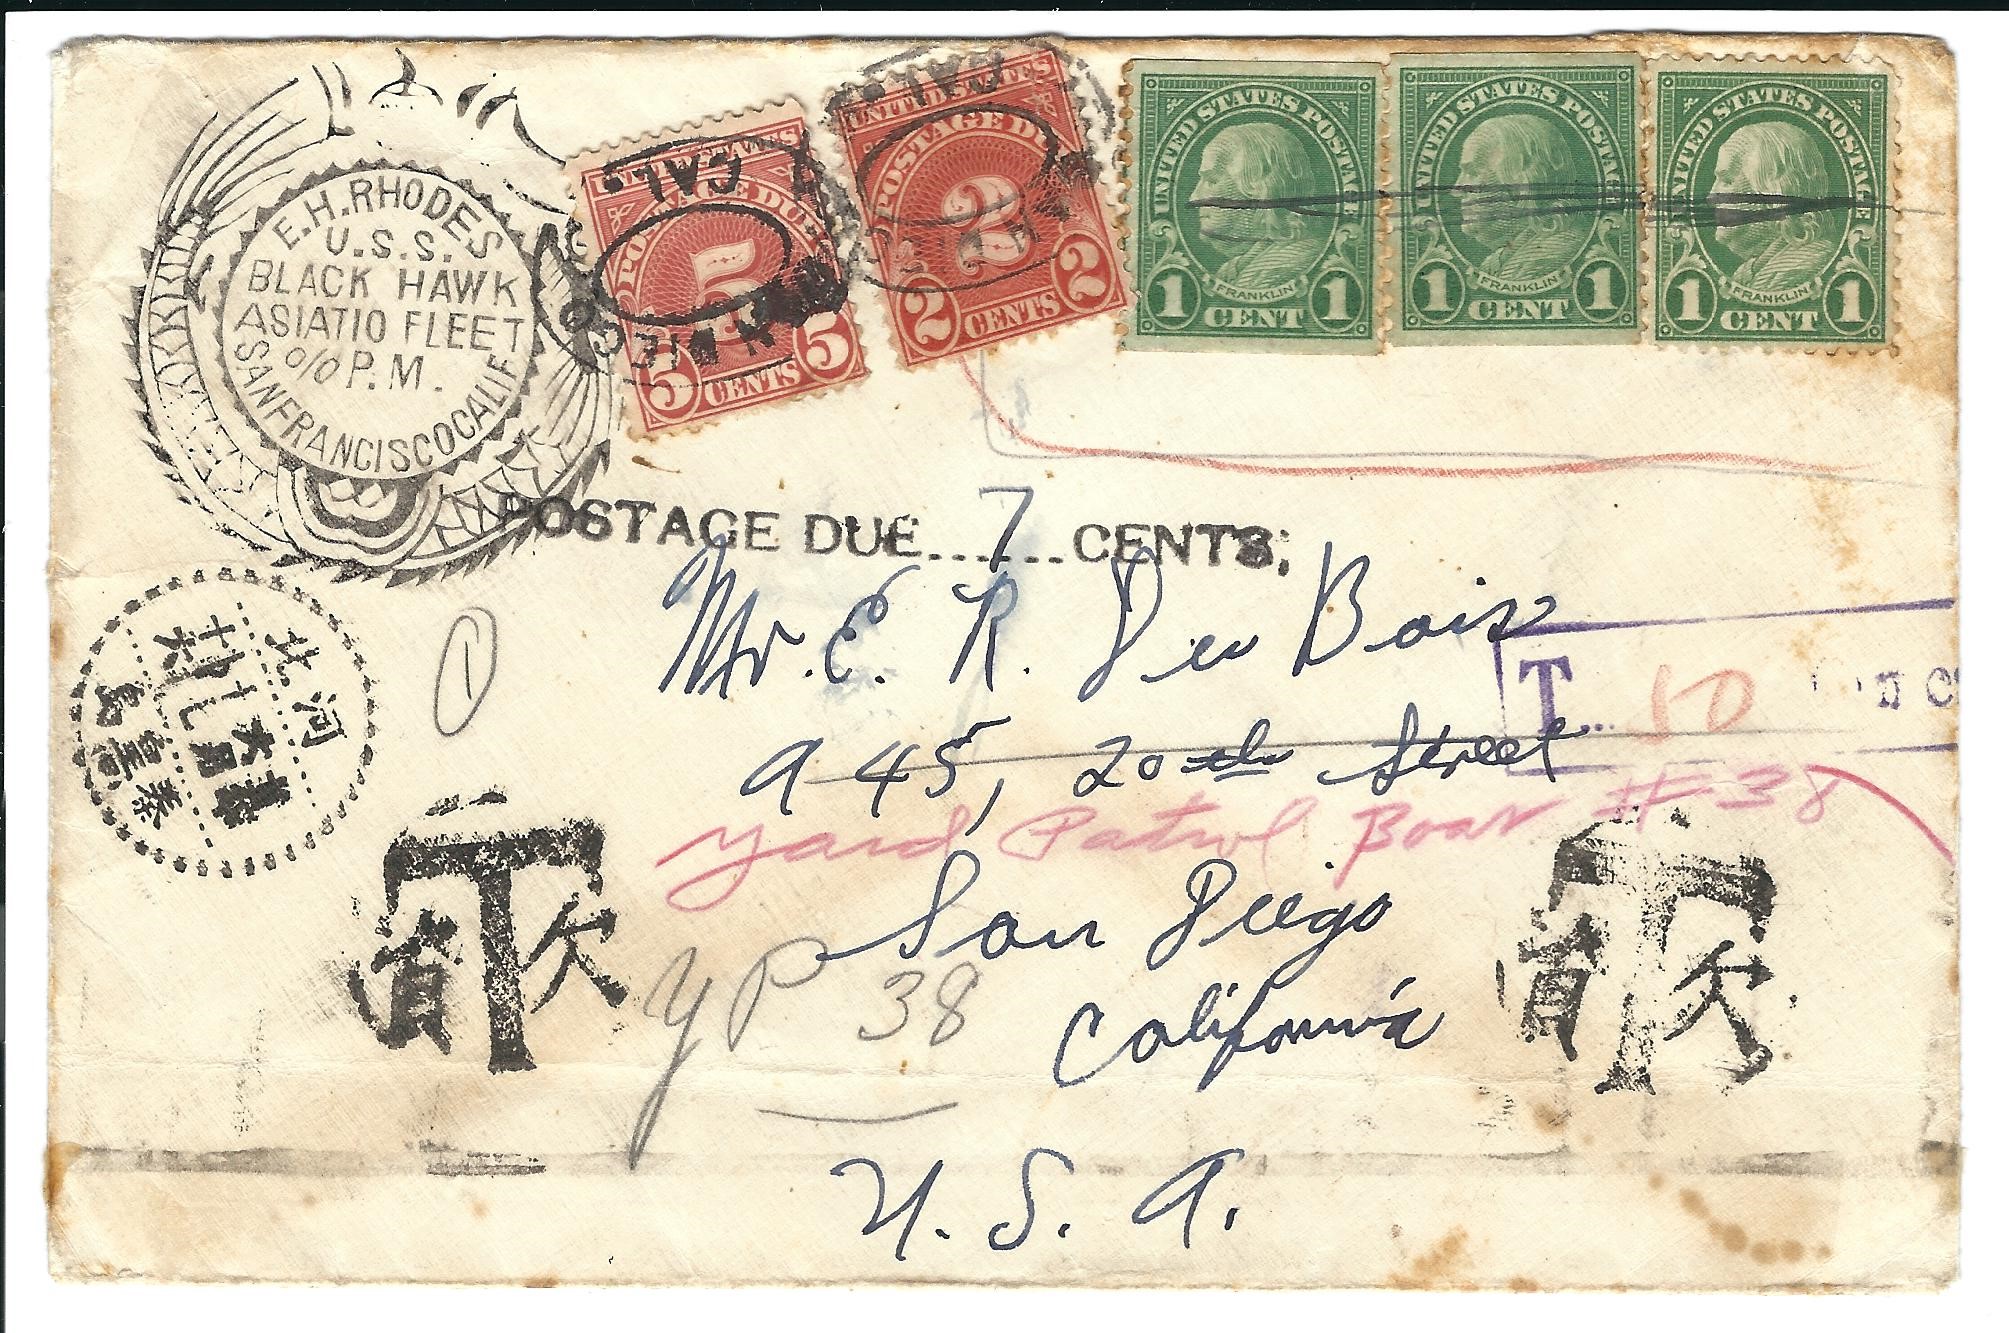 E.H.RHODES
U.S.S.
BLACK HAWK
ASIATIO FLEET
o/o P.M.
SANFRANCISCOCALIF
UNITED STATES
POSTAGE DUE
5
5 CENTS 5
CAL.
UNITED STATES
POSTAGE DUE
2
2 CENTS 2
CAL.
UNITED STATES POSTAGE
FRANKLIN
1 CENT 1
UNITED STATES POSTAGE
FRANKLIN
1 CENT 1
UNITED STATES POSTAGE
FRANKLIN
1 CENT 1
POSTAGE DUE...7...CENTS;
1
Mr. E. R. Deu Bois
945, 20th Street
T... 10
Yard Patrol Boat #38
San Diego
YP 38
California
U. S. A.
北河
島皇秦
欠 T 資
欠 T 資